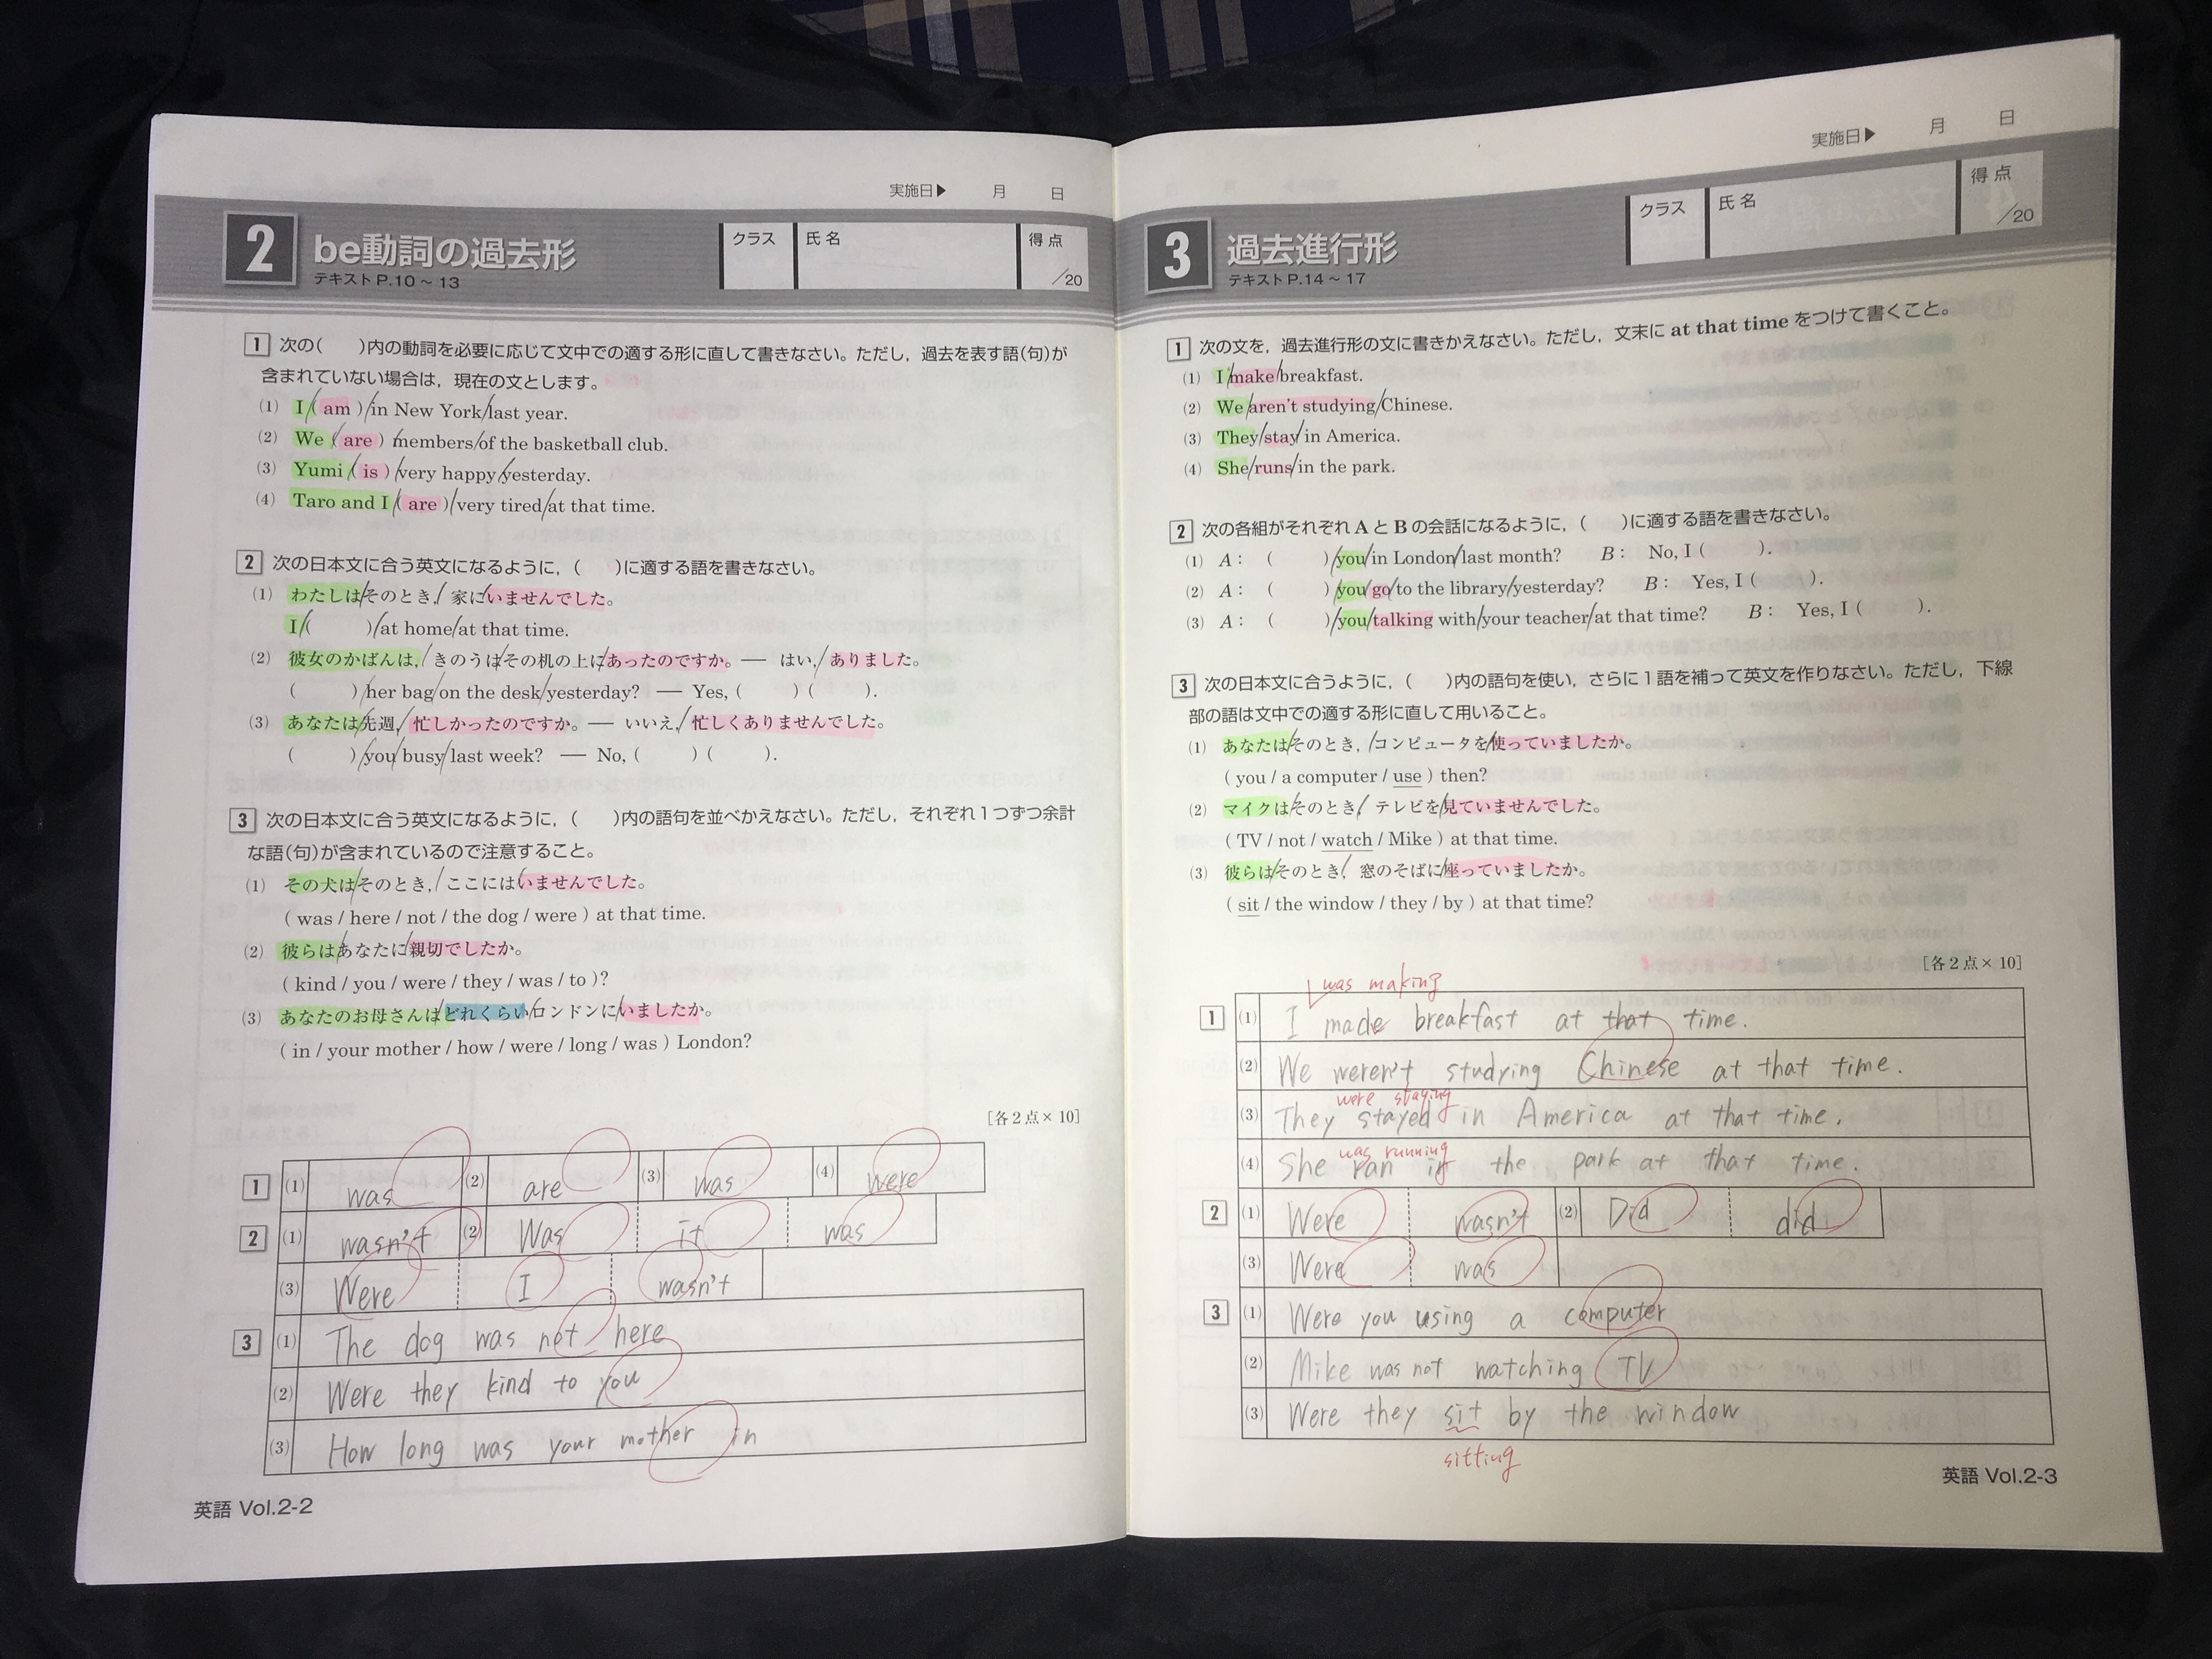 実施日▶ 月 日
2 be動詞の過去形
テキストP.10～13
クラス 氏名 得点 /20
1 次の( )内の動詞を必要に応じて文中での適する形に直して書きなさい。ただし，過去を表す語(句)が
含まれていない場合は，現在の文とします。
(1) I ( am ) in New York last year.
(2) We ( are ) members of the basketball club.
(3) Yumi ( is ) very happy yesterday.
(4) Taro and I ( are ) very tired at that time.
2 次の日本文に合う英文になるように，( )に適する語を書きなさい。
(1) わたしはそのとき，家にいませんでした。
I ( ) at home at that time.
(2) 彼女のかばんは，きのうはその机の上にあったのですか。― はい，ありました。
( ) her bag on the desk yesterday? ― Yes, ( ) ( ).
(3) あなたは先週，忙しかったのですか。― いいえ，忙しくありませんでした。
( ) you busy last week? ― No, ( ) ( ).
3 次の日本文に合う英文になるように，( )内の語句を並べかえなさい。ただし，それぞれ1つずつ余計
な語(句)が含まれているので注意すること。
(1) その犬はそのとき，ここにはいませんでした。
( was / here / not / the dog / were ) at that time.
(2) 彼らはあなたに親切でしたか。
( kind / you / were / they / was / to )?
(3) あなたのお母さんはどれくらいロンドンにいましたか。
( in / your mother / how / were / long / was ) London?
[各2点×10]
1 (1) was (2) are (3) was (4) were
2 (1) wasn't (2) Was it was
(3) Were I wasn't
3 (1) The dog was not here
(2) Were they kind to you
(3) How long was your mother in
英語 Vol.2-2
実施日▶ 月 日
3 過去進行形
テキストP.14～17
クラス 氏名 得点 /20
1 次の文を，過去進行形の文に書きかえなさい。ただし，文末に at that time をつけて書くこと。
(1) I make breakfast.
(2) We aren't studying Chinese.
(3) They stay in America.
(4) She runs in the park.
2 次の各組がそれぞれAとBの会話になるように，( )に適する語を書きなさい。
(1) A: ( ) you in London last month? B: No, I ( ).
(2) A: ( ) you go to the library yesterday? B: Yes, I ( ).
(3) A: ( ) you talking with your teacher at that time? B: Yes, I ( ).
3 次の日本文に合うように，( )内の語句を使い，さらに1語を補って英文を作りなさい。ただし，下線
部の語は文中での適する形に直して用いること。
(1) あなたはそのとき，コンピュータを使っていましたか。
( you / a computer / use ) then?
(2) マイクはそのとき，テレビを見ていませんでした。
( TV / not / watch / Mike ) at that time.
(3) 彼らはそのとき，窓のそばに座っていましたか。
( sit / the window / they / by ) at that time?
[各2点×10]
was making
1 (1) I made breakfast at that time.
(2) We weren't studying Chinese at that time.
were staying
(3) They stayed in America at that time.
was running
(4) She ran in the park at that time.
2 (1) Were wasn't (2) Did did
(3) Were was
3 (1) Were you using a computer
(2) Mike was not watching TV
(3) Were they sit by the window
sitting
英語 Vol.2-3